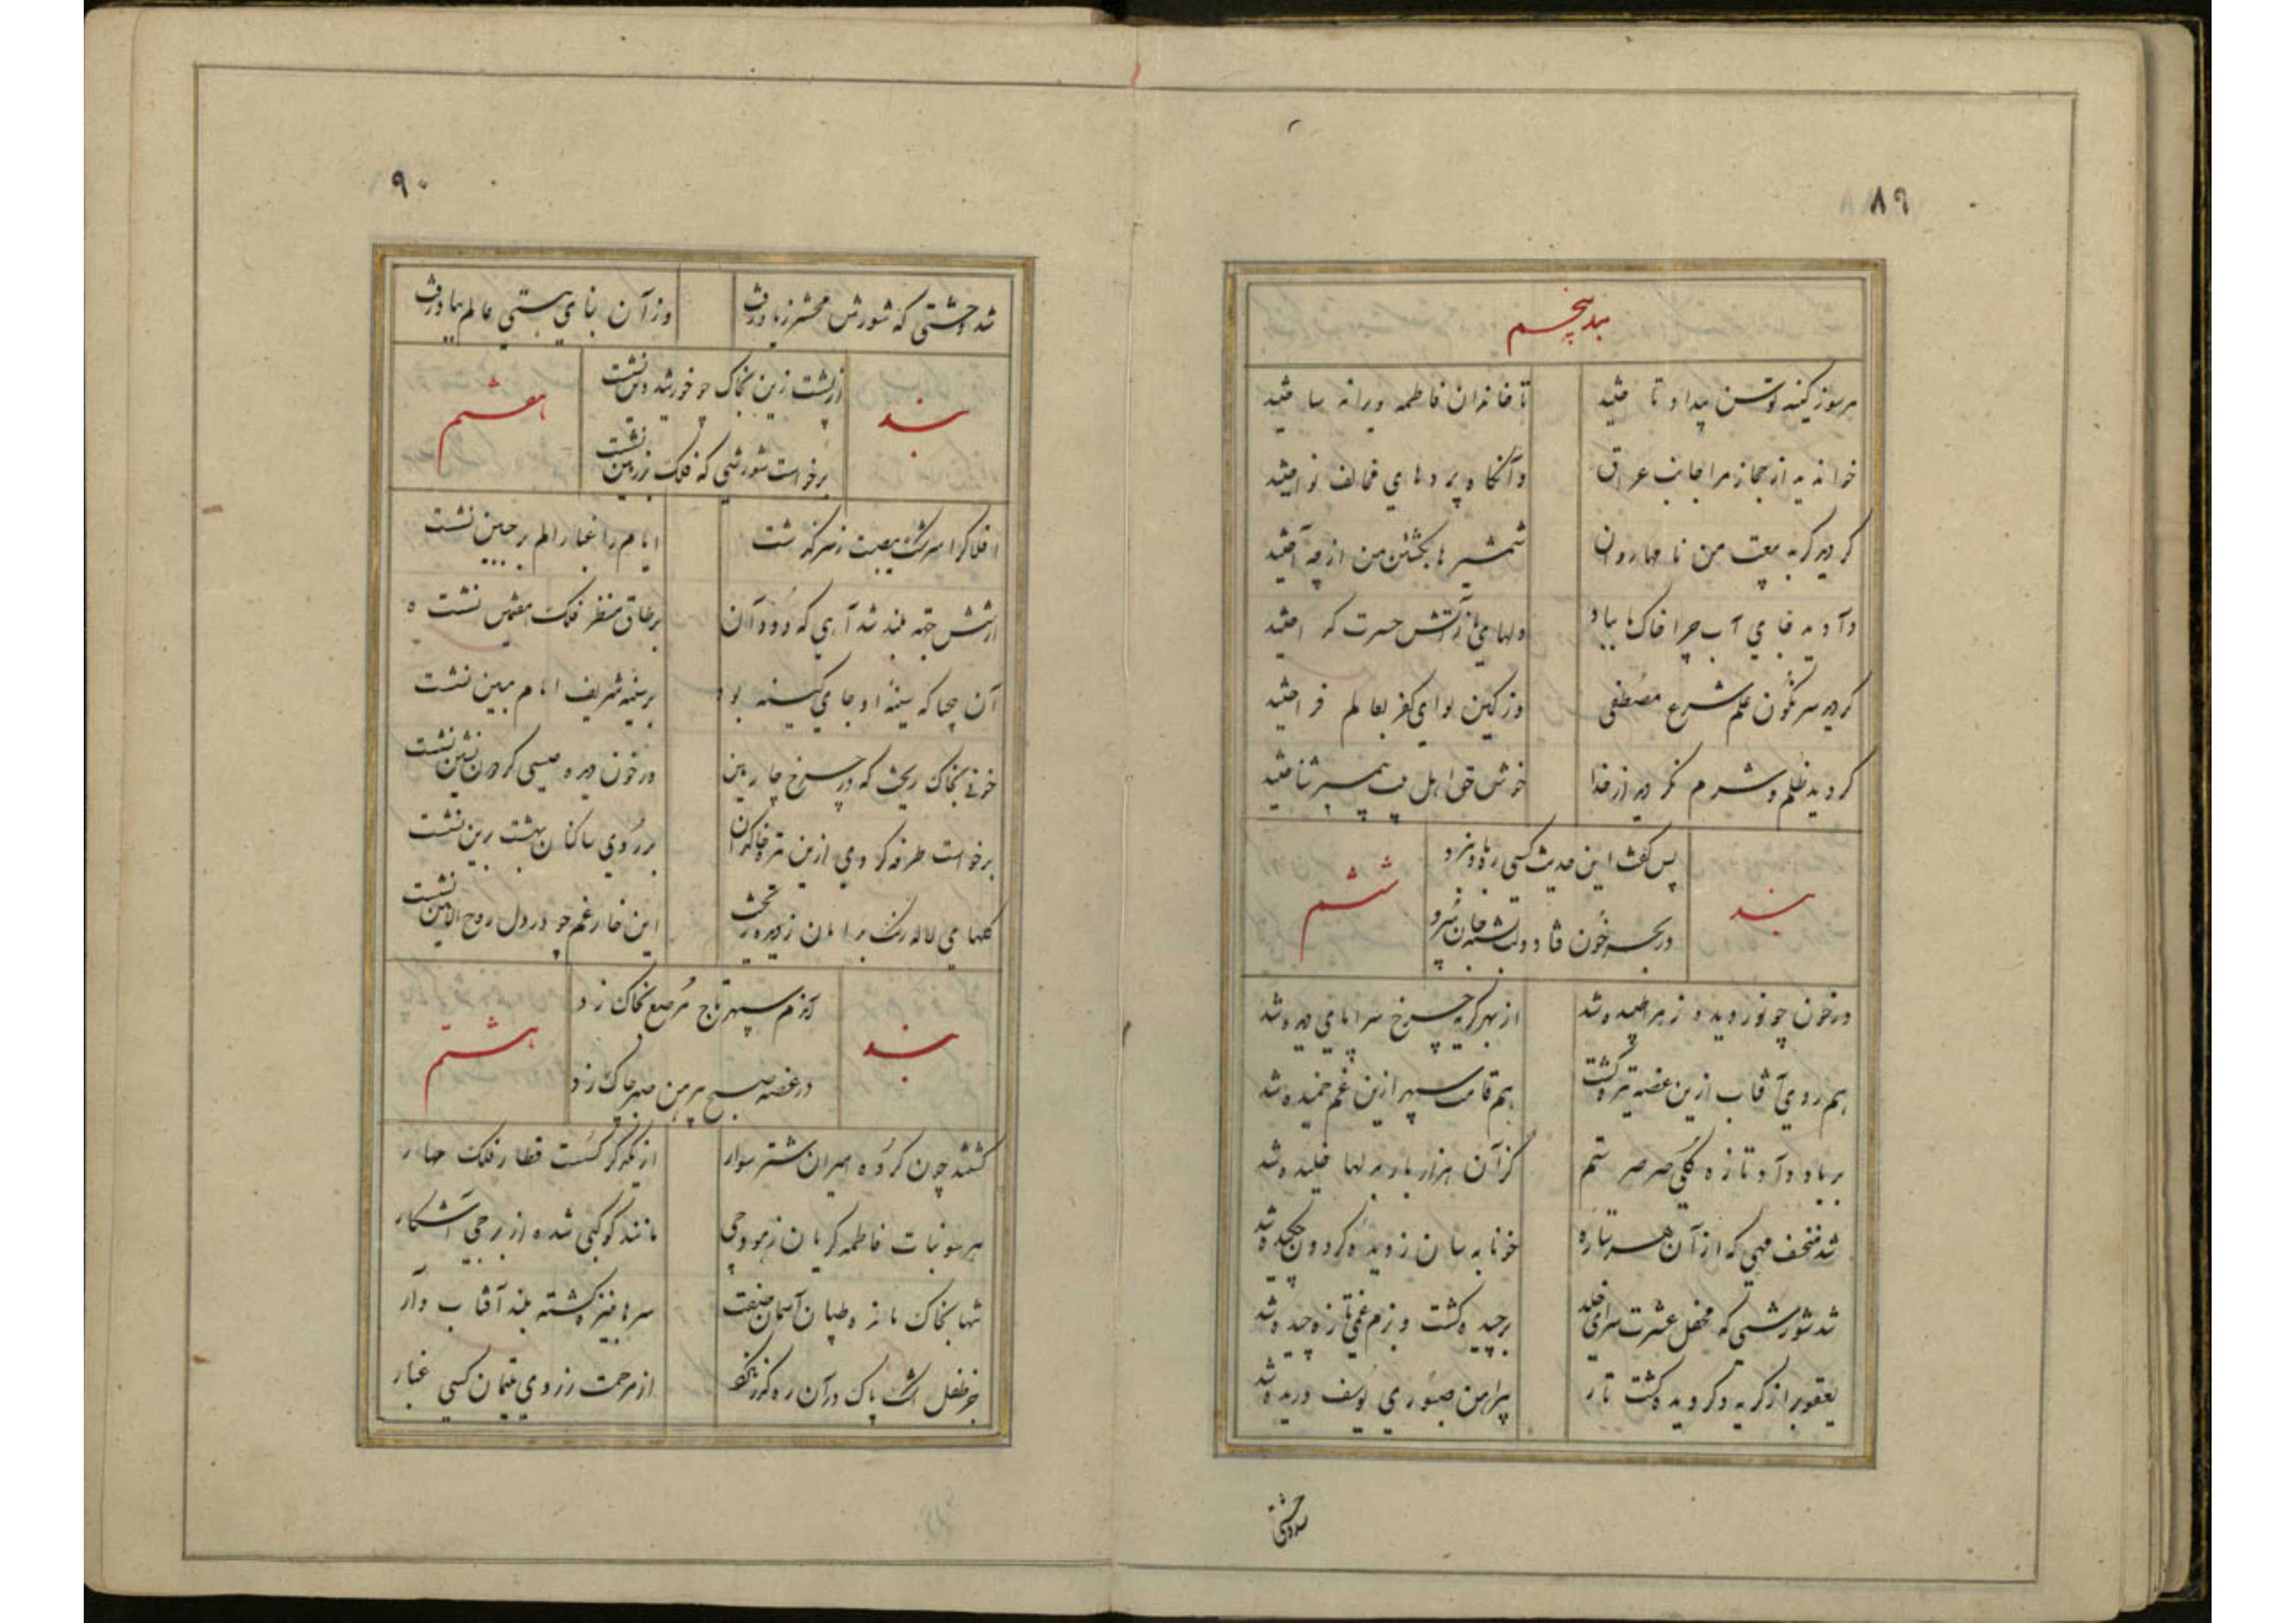 ۸۹
بند پنجم
هر سو ز کینه توسن بیداد تا ختید
تا خاندان فاطمه ویرانه سا ختید
خواندید از حجاز مرا جانب عراق
وآنگاه پردهای مخالف نوا ختید
کردید گر به بیعت من نامها روان
شمشیرها بکشتن من از چه آختید
دادید جای آب چرا خاکها بباد
دلهای ما ز آتش حسرت گدا ختید
کردید سرنگون علم شرع مصطفی
وز کین لوای کفر بعالم فرا ختید
کردید ظلم و شرم نکردید از خدا
خوش حق اهل بیت پیمبر شنا ختید
بند
پس گفت این حدیث کسی ره باو نبرد
در بحر خون فتاد و لب تشنه جان سپرد
ششم
در خون چو نور دیده زهرا طپیده شد
از بهر گریه چرخ سراپای دیده شد
هم روی آفتاب ازین غصه تیره گشت
هم قامت سپهر ازین غم خمیده شد
بر باد داد تازه گلی صرصر ستم
کز آن هزار خار بدلها خلیده شد
شد منخسف مهی که از آن هر ستاره
خونابه سان ز دیده گردون چکیده شد
شد شورشی که محفل عشرت سرای خلد
برچیده گشت و بزم غمی تازه چیده شد
یعقوب را ز گریه دگر دیده گشت تار
پیراهن صبوری یوسف دریده شد
شد وحشتی
۹۰
شد وحشتی که شورش محشر ز یاد رفت
وز آن بنای هستی عالم بباد رفت
بند
از پشت زین بخاک چو خورشید دین نشست
برخواست شورشی که فلک بر زمین نشست
هفتم
افلاک را سرشک مصیبت ز سر گذشت
ایام را غبار الم بر جبین نشست
از شش جهه بلند شد آهی که دود آن
بر طاق منظر فلک هفتمین نشست
آن بیحیا که سینه او جای کینه بود
بر سینه شریف امام مبین نشست
خونی بخاک ریخت که در چرخ چارمین
در خون دیده عیسی گردون نشین نشست
برخواست طرفه گردی ازین تیره خاکدان
بر روی ساکنان بهشت برین نشست
گلهای لاله رنگ بدامان ز دیده ریخت
این خار غم چو در دل روح الامین نشست
بند
آندم سپهر تاج مرصع بخاک زد
در غصه صبح پیرهن صبر چاک زد
هشتم
گشتند چون گروه اسیران شتر سوار
از یکدگر گسست قطار فلک مهار
هر سو بنات فاطمه گریان ز هودجی
مانند کوکبی شده از برجی آشکار
تنها بخاک مانده طپان آسمان صفت
سرها به نیزه گشته بلند آفتاب وار
جز طفل اشک پاک در آن رهگذر نکرد
از مرحمت ز روی یتیمان کسی غبار